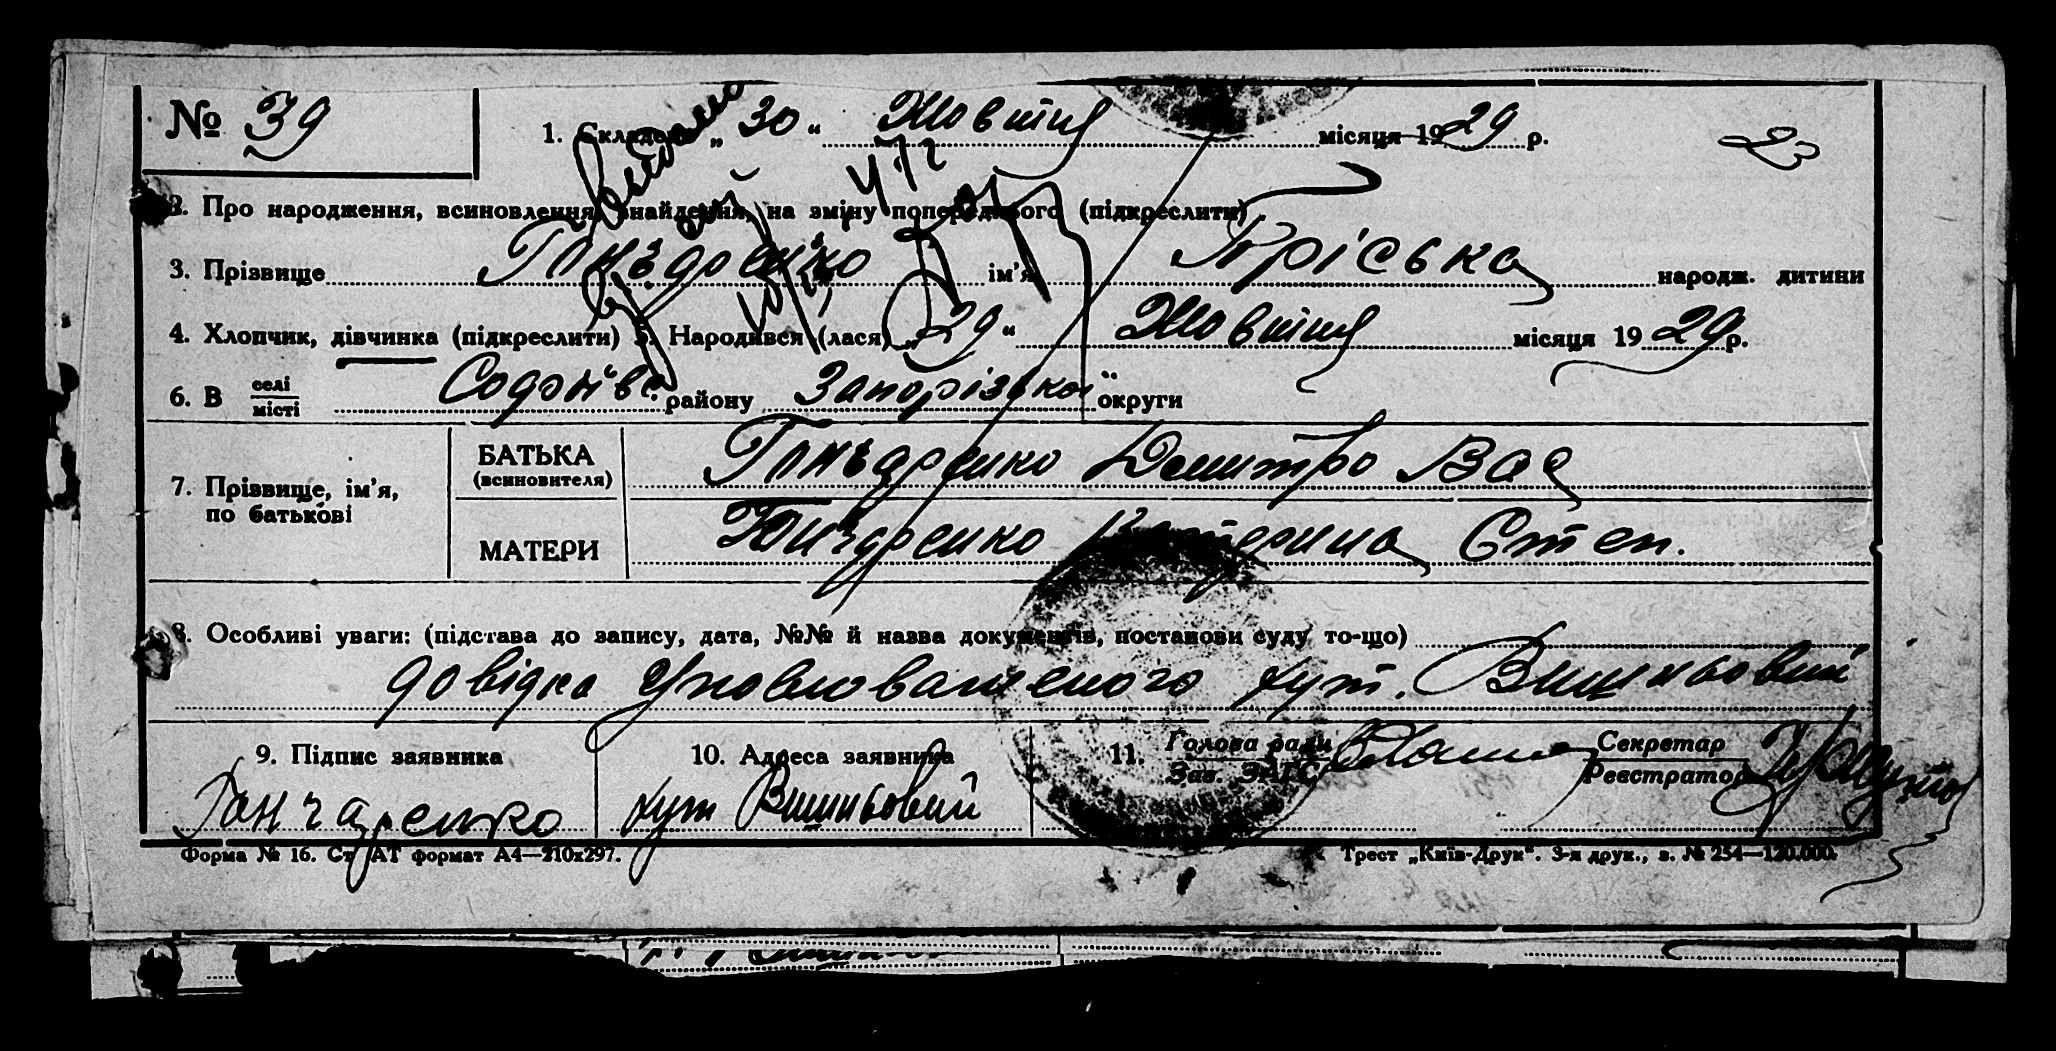 № 39
1. Складено „30“ Жовтня місяця 1929 р.
2. Про народження, всиновлення, знайдення, на зміну попереднього (підкреслити)
3. Прізвище Гончаренко ім'я Пріська народж. дитини
4. Хлопчик, дівчинка (підкреслити) 5. Народився (лася) „29“ Жовтня місяця 1929 р.
6. В селі/місті Софіївс. району Запорізької округи
7. Прізвище, ім'я, по батькові
БАТЬКА (всиновителя) Гончаренко Дмитро Вас
МАТЕРИ Гончаренко Катерина Степ.
8. Особливі уваги: (підстава до запису, дата, №№ й назва документів, постанови суду то-що)
довідка Уповноваженого хут. Вишньовий
9. Підпис заявника 10. Адреса заявника 11. Голова ради Секретар
Зав. ЗАГС Реєстратор
Гончаренко хут Вишньовий
Форма № 16. Ст АТ формат А4—210х297. Трест „Київ-Друк“. 3-я друк., з. № 254—120.000.